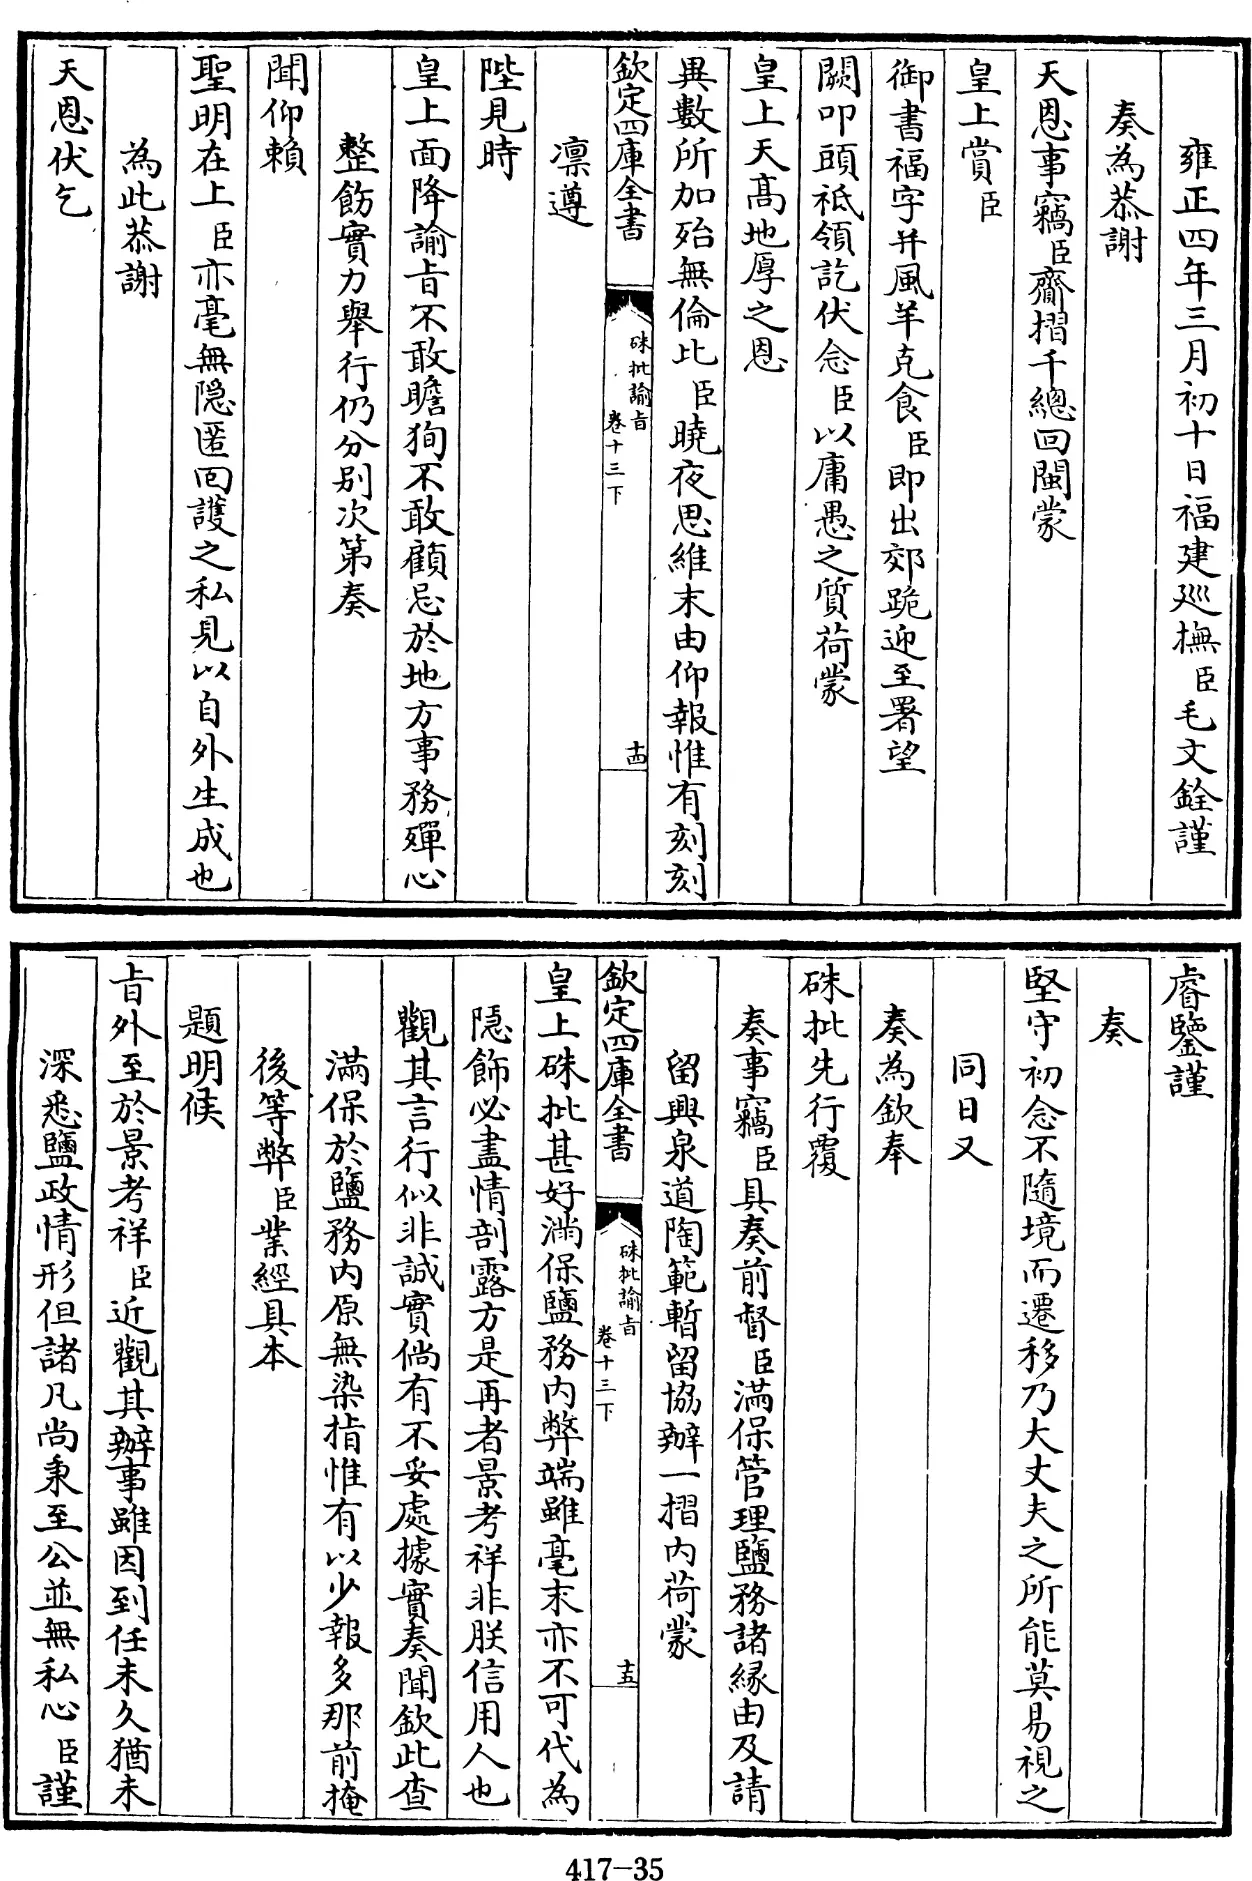 雍正四年三月初十日福建廵撫臣毛文銓謹
奏為恭謝
天恩事竊臣齎摺千總回閩蒙
皇上賞臣
御書福字并風羊克食臣即出郊跪迎至署望
闕叩頭祗領訖伏念臣以庸愚之質荷蒙
皇上天髙地厚之恩
異數所加殆無倫比臣曉夜思維末由仰報惟有刻刻
欽定四庫全書
硃批諭㫖
卷十三下
十四
凛遵
陛見時
皇上面降諭㫖不敢瞻狥不敢顧忌於地方事務殫心
整飭實力舉行仍分别次第奏
聞仰賴
聖明在上臣亦毫無隠匿囘護之私見以自外生成也
為此恭謝
天恩伏乞
睿鑒謹
奏
堅守初念不隨境而遷移乃大丈夫之所能莫易視之
同日又
奏為欽奉
硃批先行覆
奏事竊臣具奏前督臣滿保管理鹽務諸縁由及請
留興泉道陶範暫留協辦一摺内荷蒙
欽定四庫全書
硃批諭㫖
卷十三下
十五
皇上硃批甚好滿保鹽務内弊端雖毫末亦不可代為
隠飾必盡情剖露方是再者景考祥非朕信用人也
觀其言行似非誠實倘有不妥處據實奏聞欽此查
滿保於鹽務内原無染指惟有以少報多那前掩
後等弊臣業經具本
題明候
㫖外至於景考祥臣近觀其辦事雖因到任未久猶未
深悉鹽政情形但諸凡尚秉至公並無私心臣謹
417-35